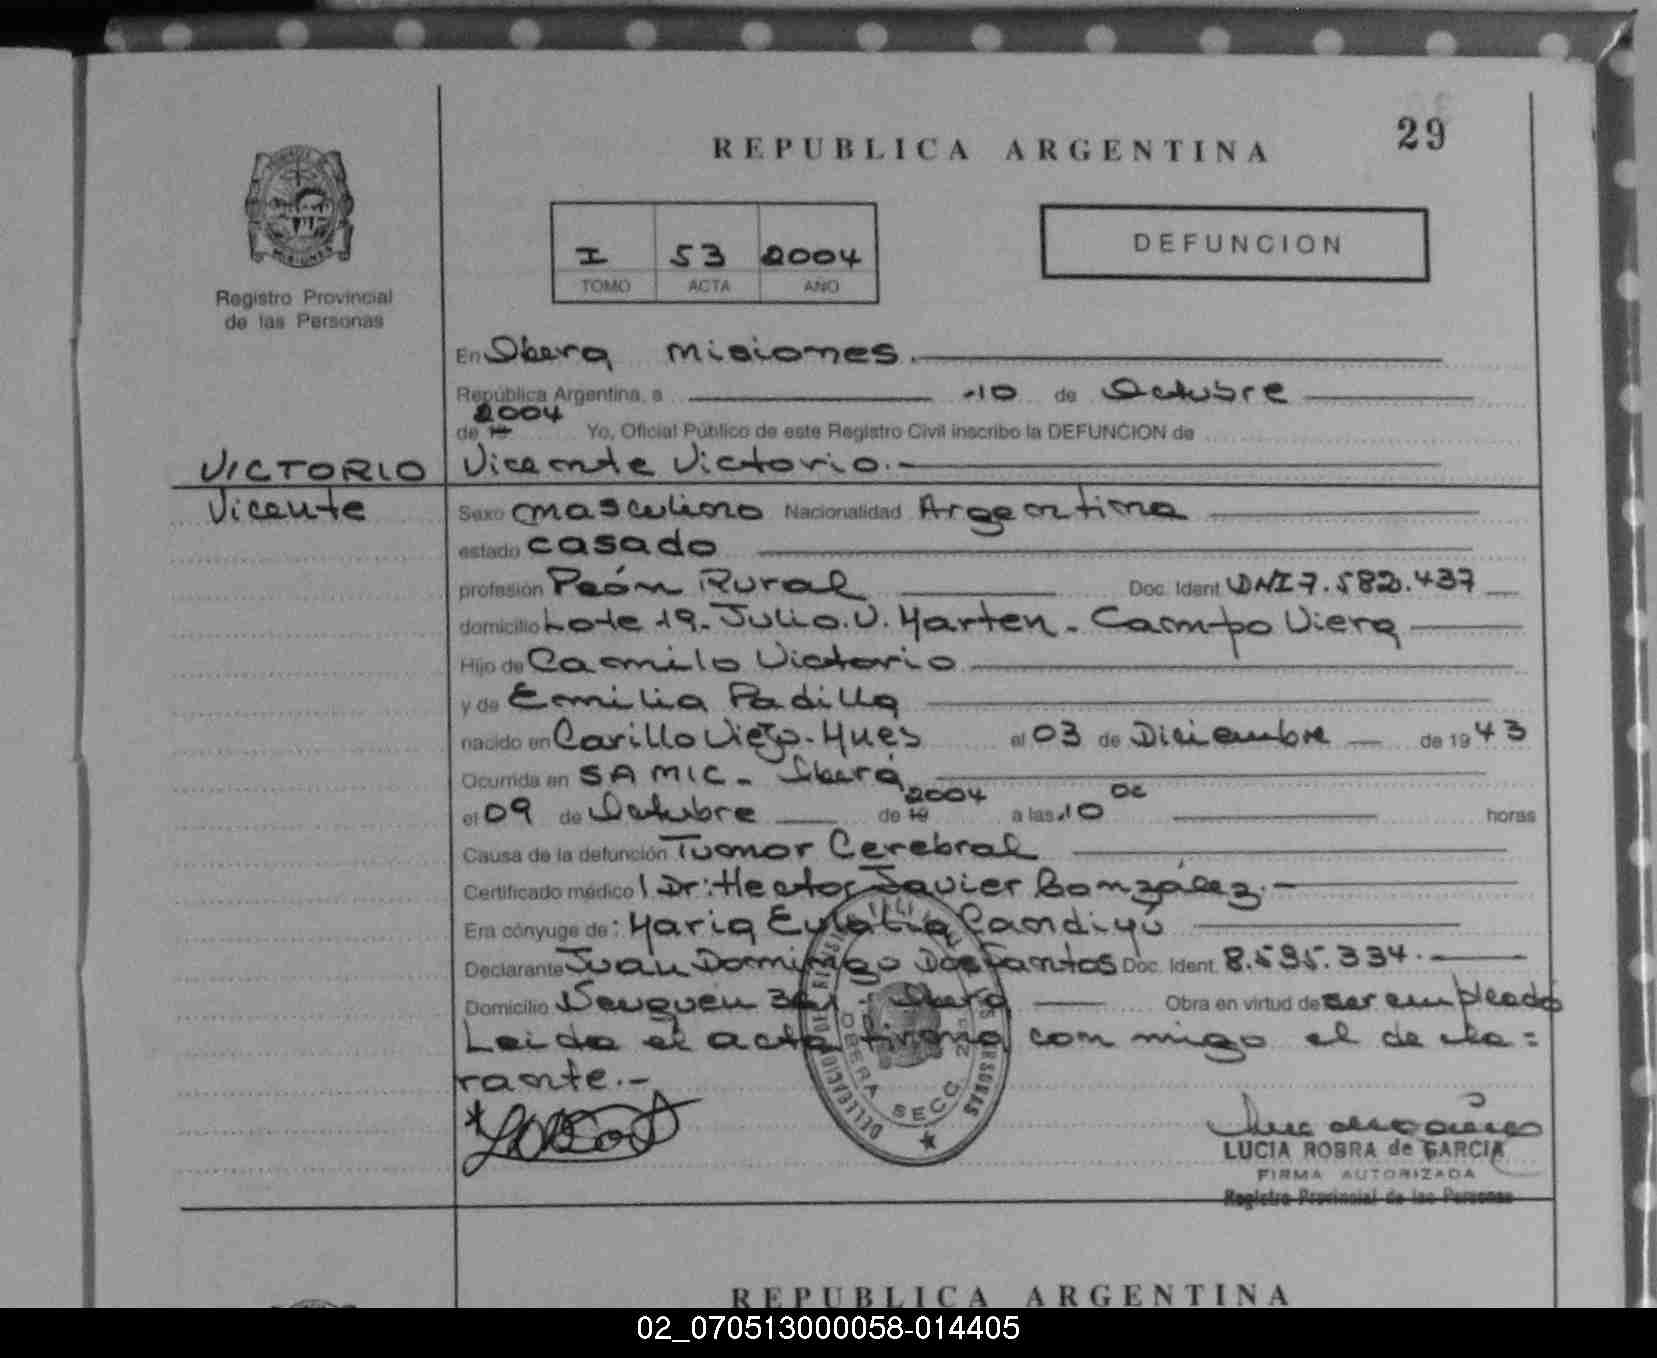 29
REPUBLICA ARGENTINA
I 53 2004
TOMO ACTA AÑO
DEFUNCION
MISIONES
Registro Provincial
de las Personas
En Oberá Misiones.
República Argentina, a 10 de Octubre
2004
de 19 Yo, Oficial Público de este Registro Civil inscribo la DEFUNCION de
VICTORIO
Vicente
Vicente Victorio.-
Sexo masculino Nacionalidad Argentina
estado casado
profesión Peón Rural Doc. Ident. DNI 7.582.437
domicilio Lote 19. Julio. U. Marten - Campo Viera
Hijo de Camilo Victorio
y de Emilia Padilla
nacido en Cerillo Viejo - Mnes el 03 de Diciembre de 1943
Ocurrida en SAMIC - Oberá
el 09 de Octubre de 19 2004 a las 10 horas
Causa de la defunción Tumor Cerebral
Certificado médico Dr: Hector Javier González.-
Era cónyuge de: Maria Eulalia Candiyú
Declarante Juan Domingo Dos Santos Doc. Ident. 8.535.334.
Domicilio Neuquén Oberá Obra en virtud de ser empleado
Leida el acta firma con migo el decla=
rante.-
DELEGACION DEL REGISTRO PERSONAS
OBERA SECC. 2
LUCIA ROBRA de GARCIA
FIRMA AUTORIZADA
Registro Provincial de las Personas
REPUBLICA ARGENTINA
02_070513000058-014405